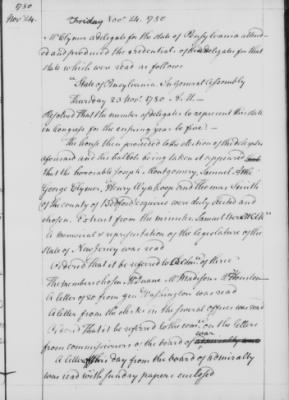 1780
Nov. 24.
Friday Nov. 24. 1780
Mr Clymer a delegate for the state of Pensylvania attend
ed and produced the credentials of the delegates for that
state which were read as follows
"State of Pensylvania In General Assembly
Thursday 23 Nov. 1780. A.M.
Resolved that the number of delegates to represent this state
in Congress for the ensuing year be five.
The house then proceeded to the election of the delegates
aforesaid and the ballots being taken it appeared
that the honorable Joseph Montgomery, Samuel Atlee
George Clymer, Henry Wynkoop and Thomas Smith
of the county of Bedford esquires were duly elected and
chosen. Extract from the minutes. Samuel Clk"
A memorial & representation of the legislature of the
state of New Jersey was read
Ordered That it be referred to a comee. of three
The members chosen Mr Duane Mr Madison Mr Houston
A letter of 20 from genl Washington was read
A letter from the clerks in the several offices was read
Ordered That it be referred to the comee. on the letters
from commissioners of the board of war
A letter of this day from the board of admiralty
was read with sundry papers enclosed